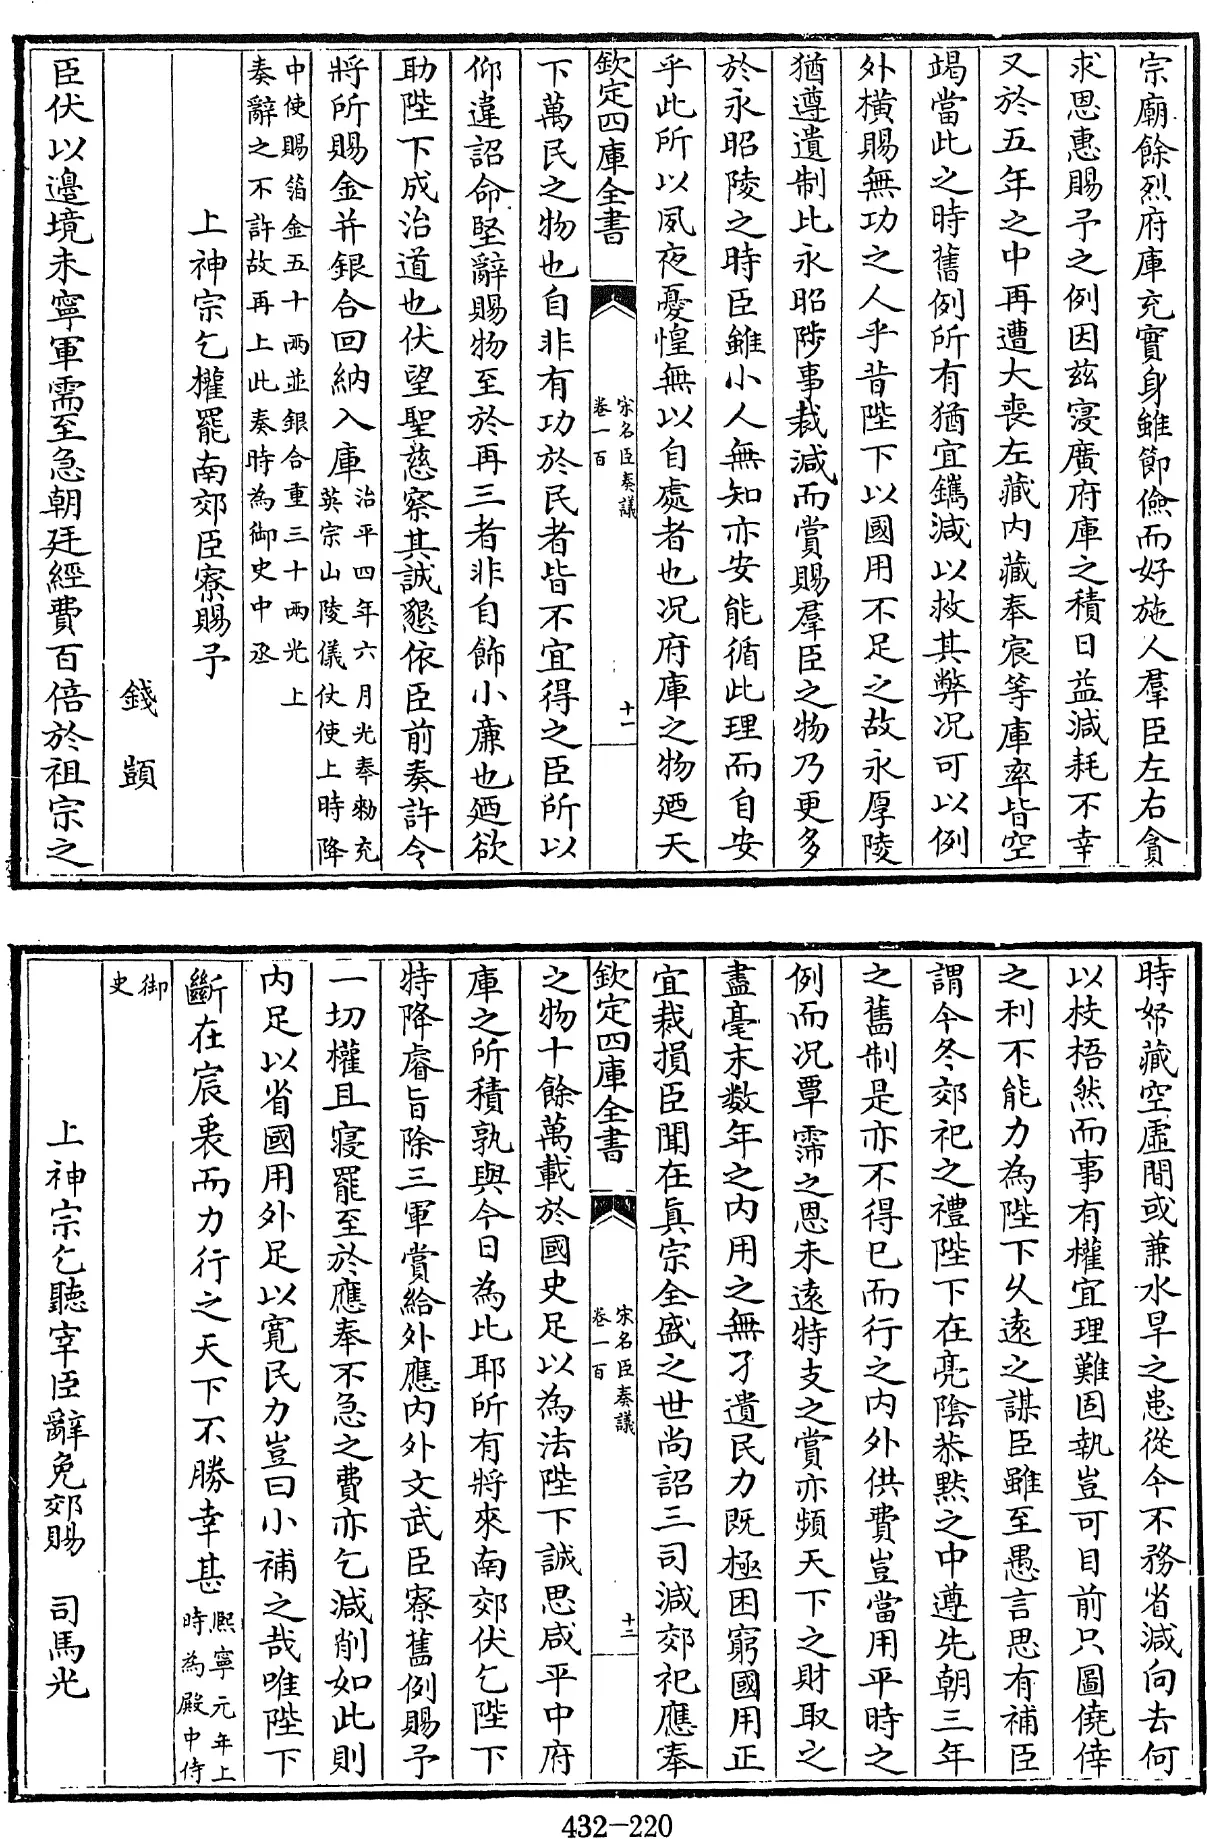 宗廟餘烈府庫充實身雖節儉而好施人羣臣左右貪
求恩惠賜予之例因兹寖廣府庫之積日益減耗不幸
又於五年之中再遭大喪左藏内藏奉宸等庫率皆空
竭當此之時舊例所有猶宜鐫減以救其弊况可以例
外橫賜無功之人乎昔陛下以國用不足之故永厚陵
猶遵遺制比永昭陵事裁減而賞賜羣臣之物乃更多
於永昭陵之時臣雖小人無知亦安能循此理而自安
乎此所以夙夜憂惶無以自處者也况府庫之物廼天
欽定四庫全書
宋名臣奏議
卷一百
十一
下萬民之物也自非有功於民者皆不宜得之臣所以
仰違詔命堅辭賜物至於再三者非自飾小廉也廼欲
助陛下成治道也伏望聖慈察其誠懇依臣前奏許令
將所賜金并銀合回納入庫治平四年六月光奉勑充
英宗山陵儀仗使上時降
中使賜箔金五十兩並銀合重三十兩光上
奏辭之不許故再上此奏時為御史中丞
上神宗乞權罷南郊臣寮賜予
錢顗
臣伏以邉境未寧軍需至急朝廷經費百倍於祖宗之
時帑藏空虛間或兼水旱之患從今不務省減向去何
以枝梧然而事有權宜理難固執豈可目前只圖僥倖
之利不能力為陛下久遠之謀臣雖至愚言思有補臣
謂今冬郊祀之禮陛下在亮陰恭黙之中遵先朝三年
之舊制是亦不得已而行之内外供費豈當用平時之
例而况覃霈之恩未遠特支之賞亦頻天下之財取之
盡毫末數年之内用之無孑遺民力既極困窮國用正
宜裁損臣聞在真宗全盛之世尚詔三司減郊祀應奉
欽定四庫全書
宋名臣奏議
卷一百
十二
之物十餘萬載於國史足以為法陛下誠思咸平中府
庫之所積孰與今日為比耶所有將來南郊伏乞陛下
特降睿旨除三軍賞給外應内外文武臣寮舊例賜予
一切權且寢罷至於應奉不急之費亦乞減削如此則
内足以省國用外足以寛民力豈曰小補之哉唯陛下
斷在宸衷而力行之天下不勝幸甚熈寧元年上
時為殿中侍
御
史
上神宗乞聽宰臣辭免郊賜　司馬光
432-220